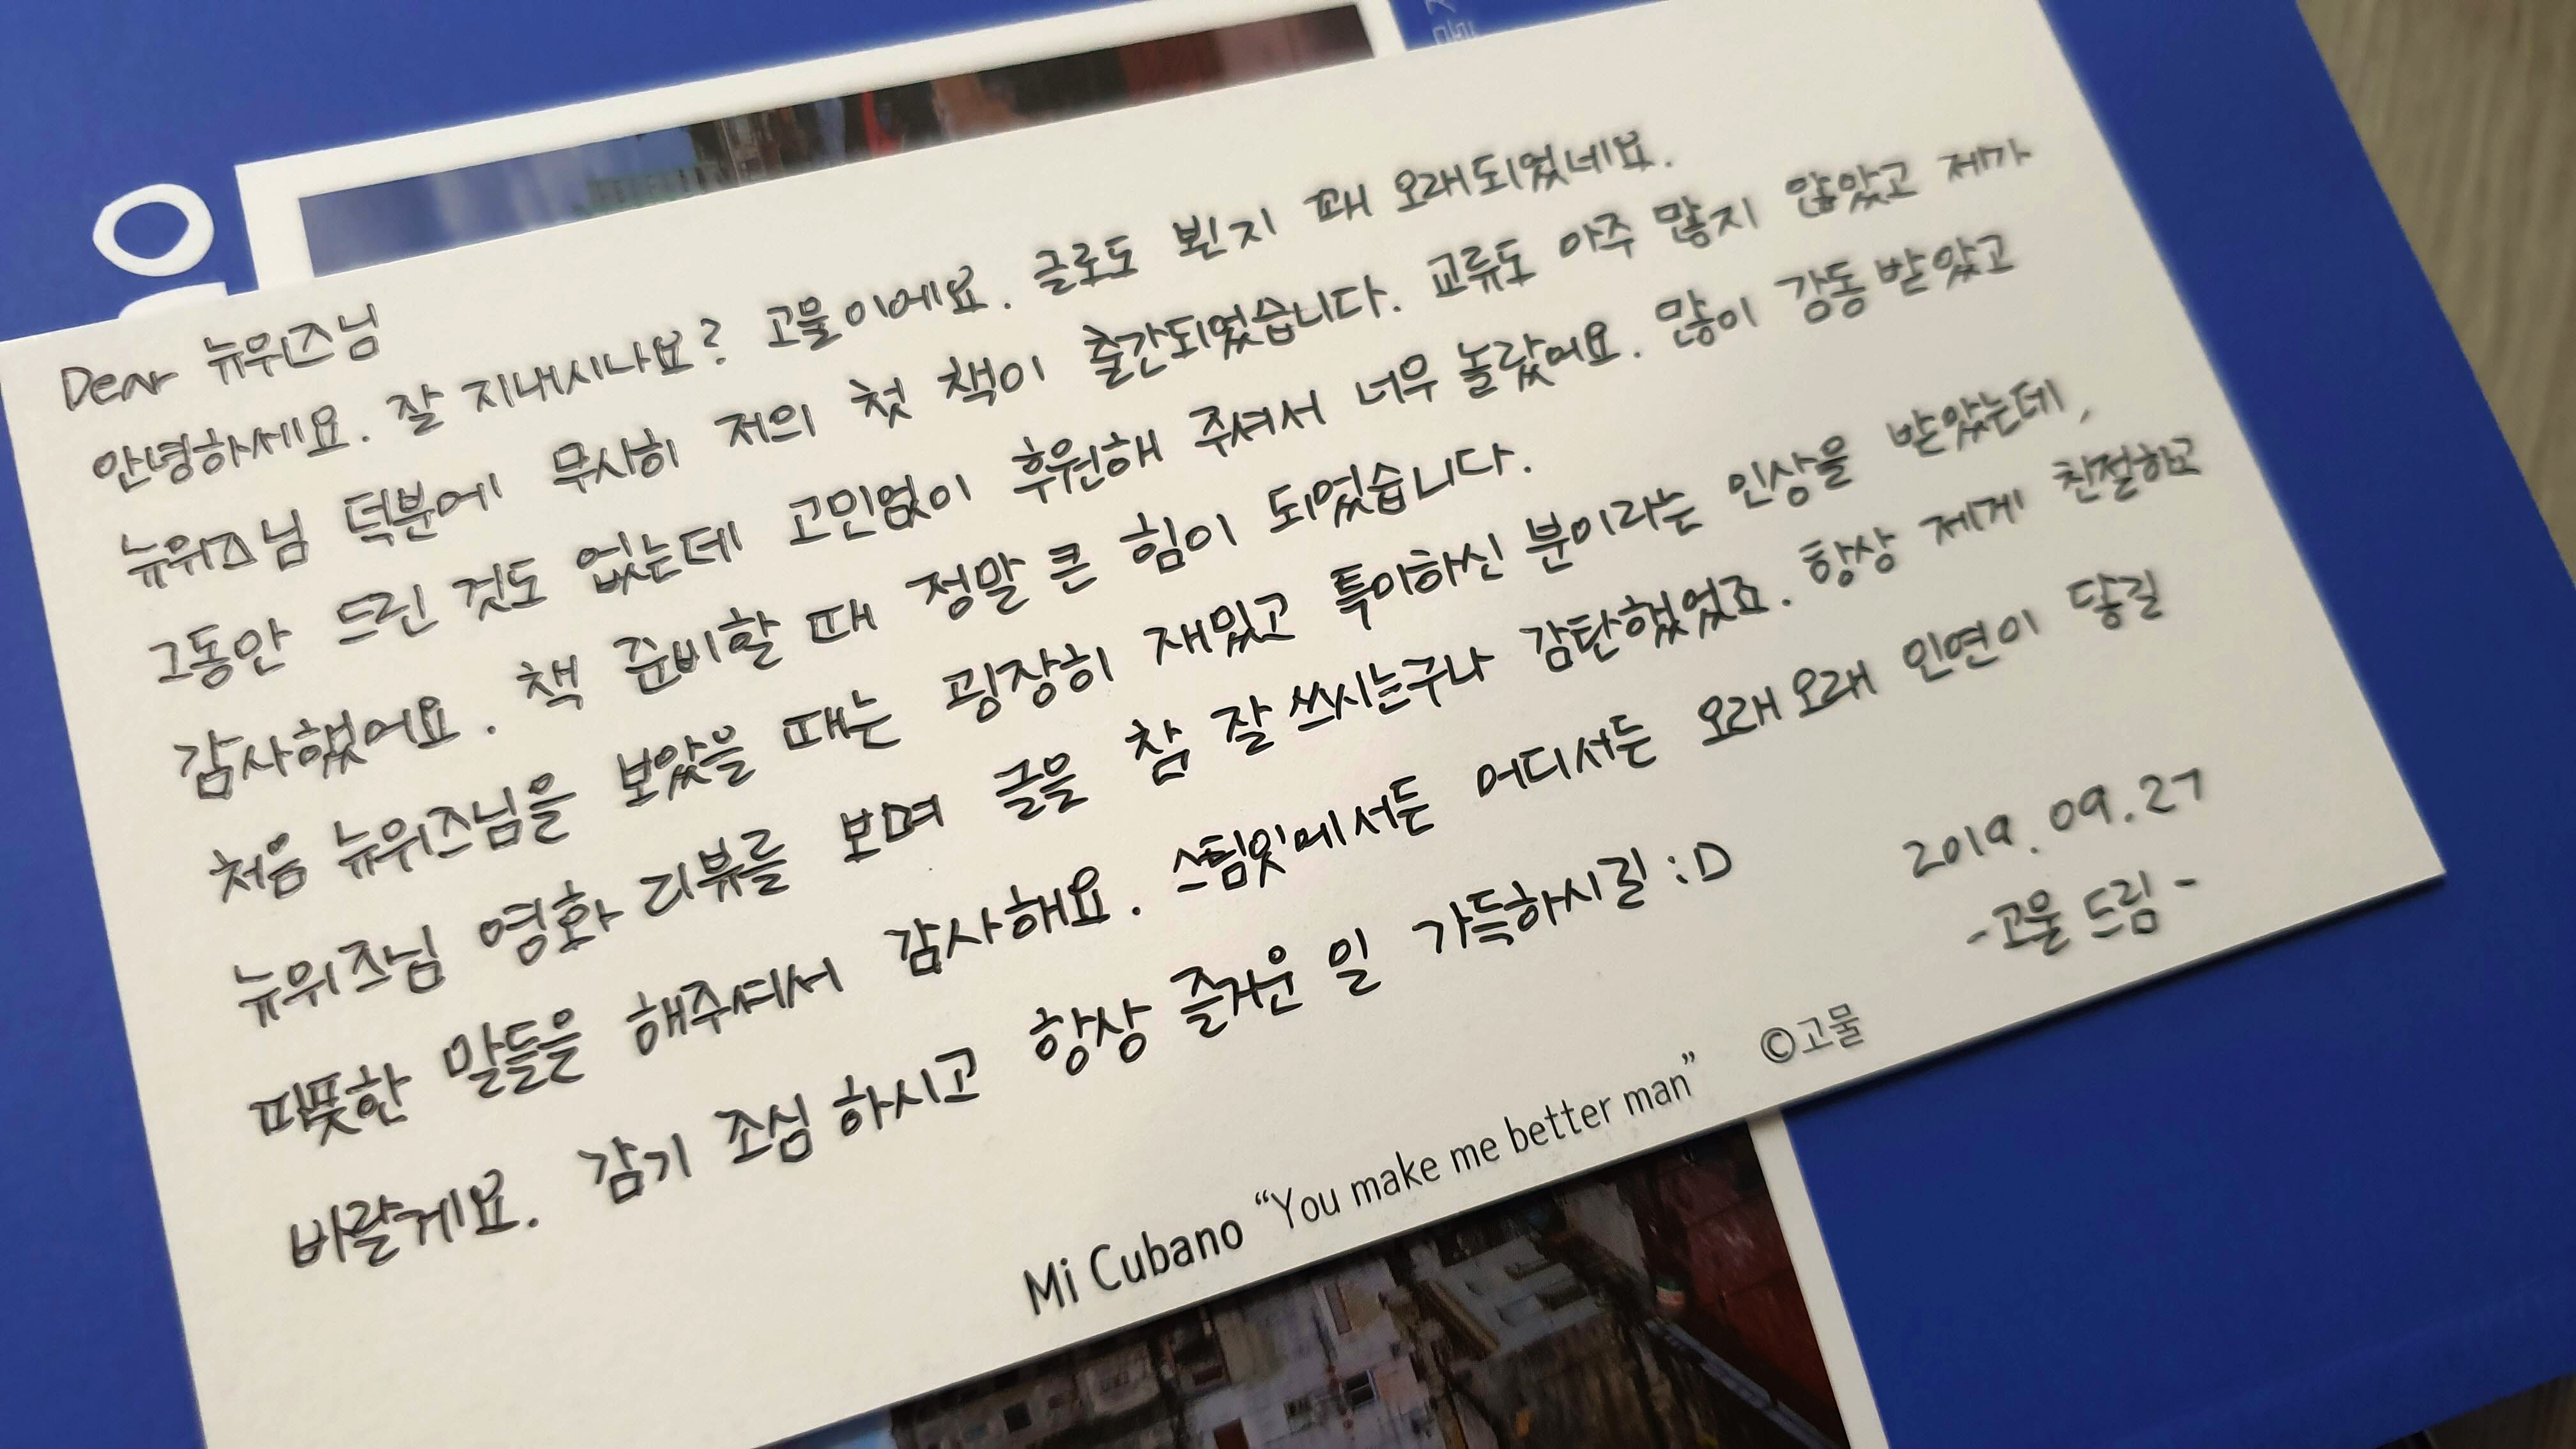 Dear 뉴위즈님
안녕하세요. 잘 지내시나요? 고물이에요. 글로도 뵌지 꽤 오래되었네요.
뉴위즈님 덕분에 무사히 저의 첫 책이 출간되었습니다. 교류도 아주 많지 않았고 제가
그동안 드린 것도 없는데 고민없이 후원해 주셔서 너무 놀랐어요. 많이 감동받았고
감사했어요. 책 준비할 때 정말 큰 힘이 되었습니다.
처음 뉴위즈님을 보았을 때는 굉장히 재밌고 특이하신 분이라는 인상을 받았는데,
뉴위즈님 영화 리뷰를 보며 글을 참 잘 쓰시는구나 감탄했었죠. 항상 제게 친절하고
따뜻한 말들을 해주셔서 감사해요. 스팀잇에서든 어디서든 오래오래 인연이 닿길
바랄게요. 감기 조심하시고 항상 즐거운 일 가득하시길 :D
2019. 09. 27
-고물 드림-
Mi Cubano “You make me better man” ©고물